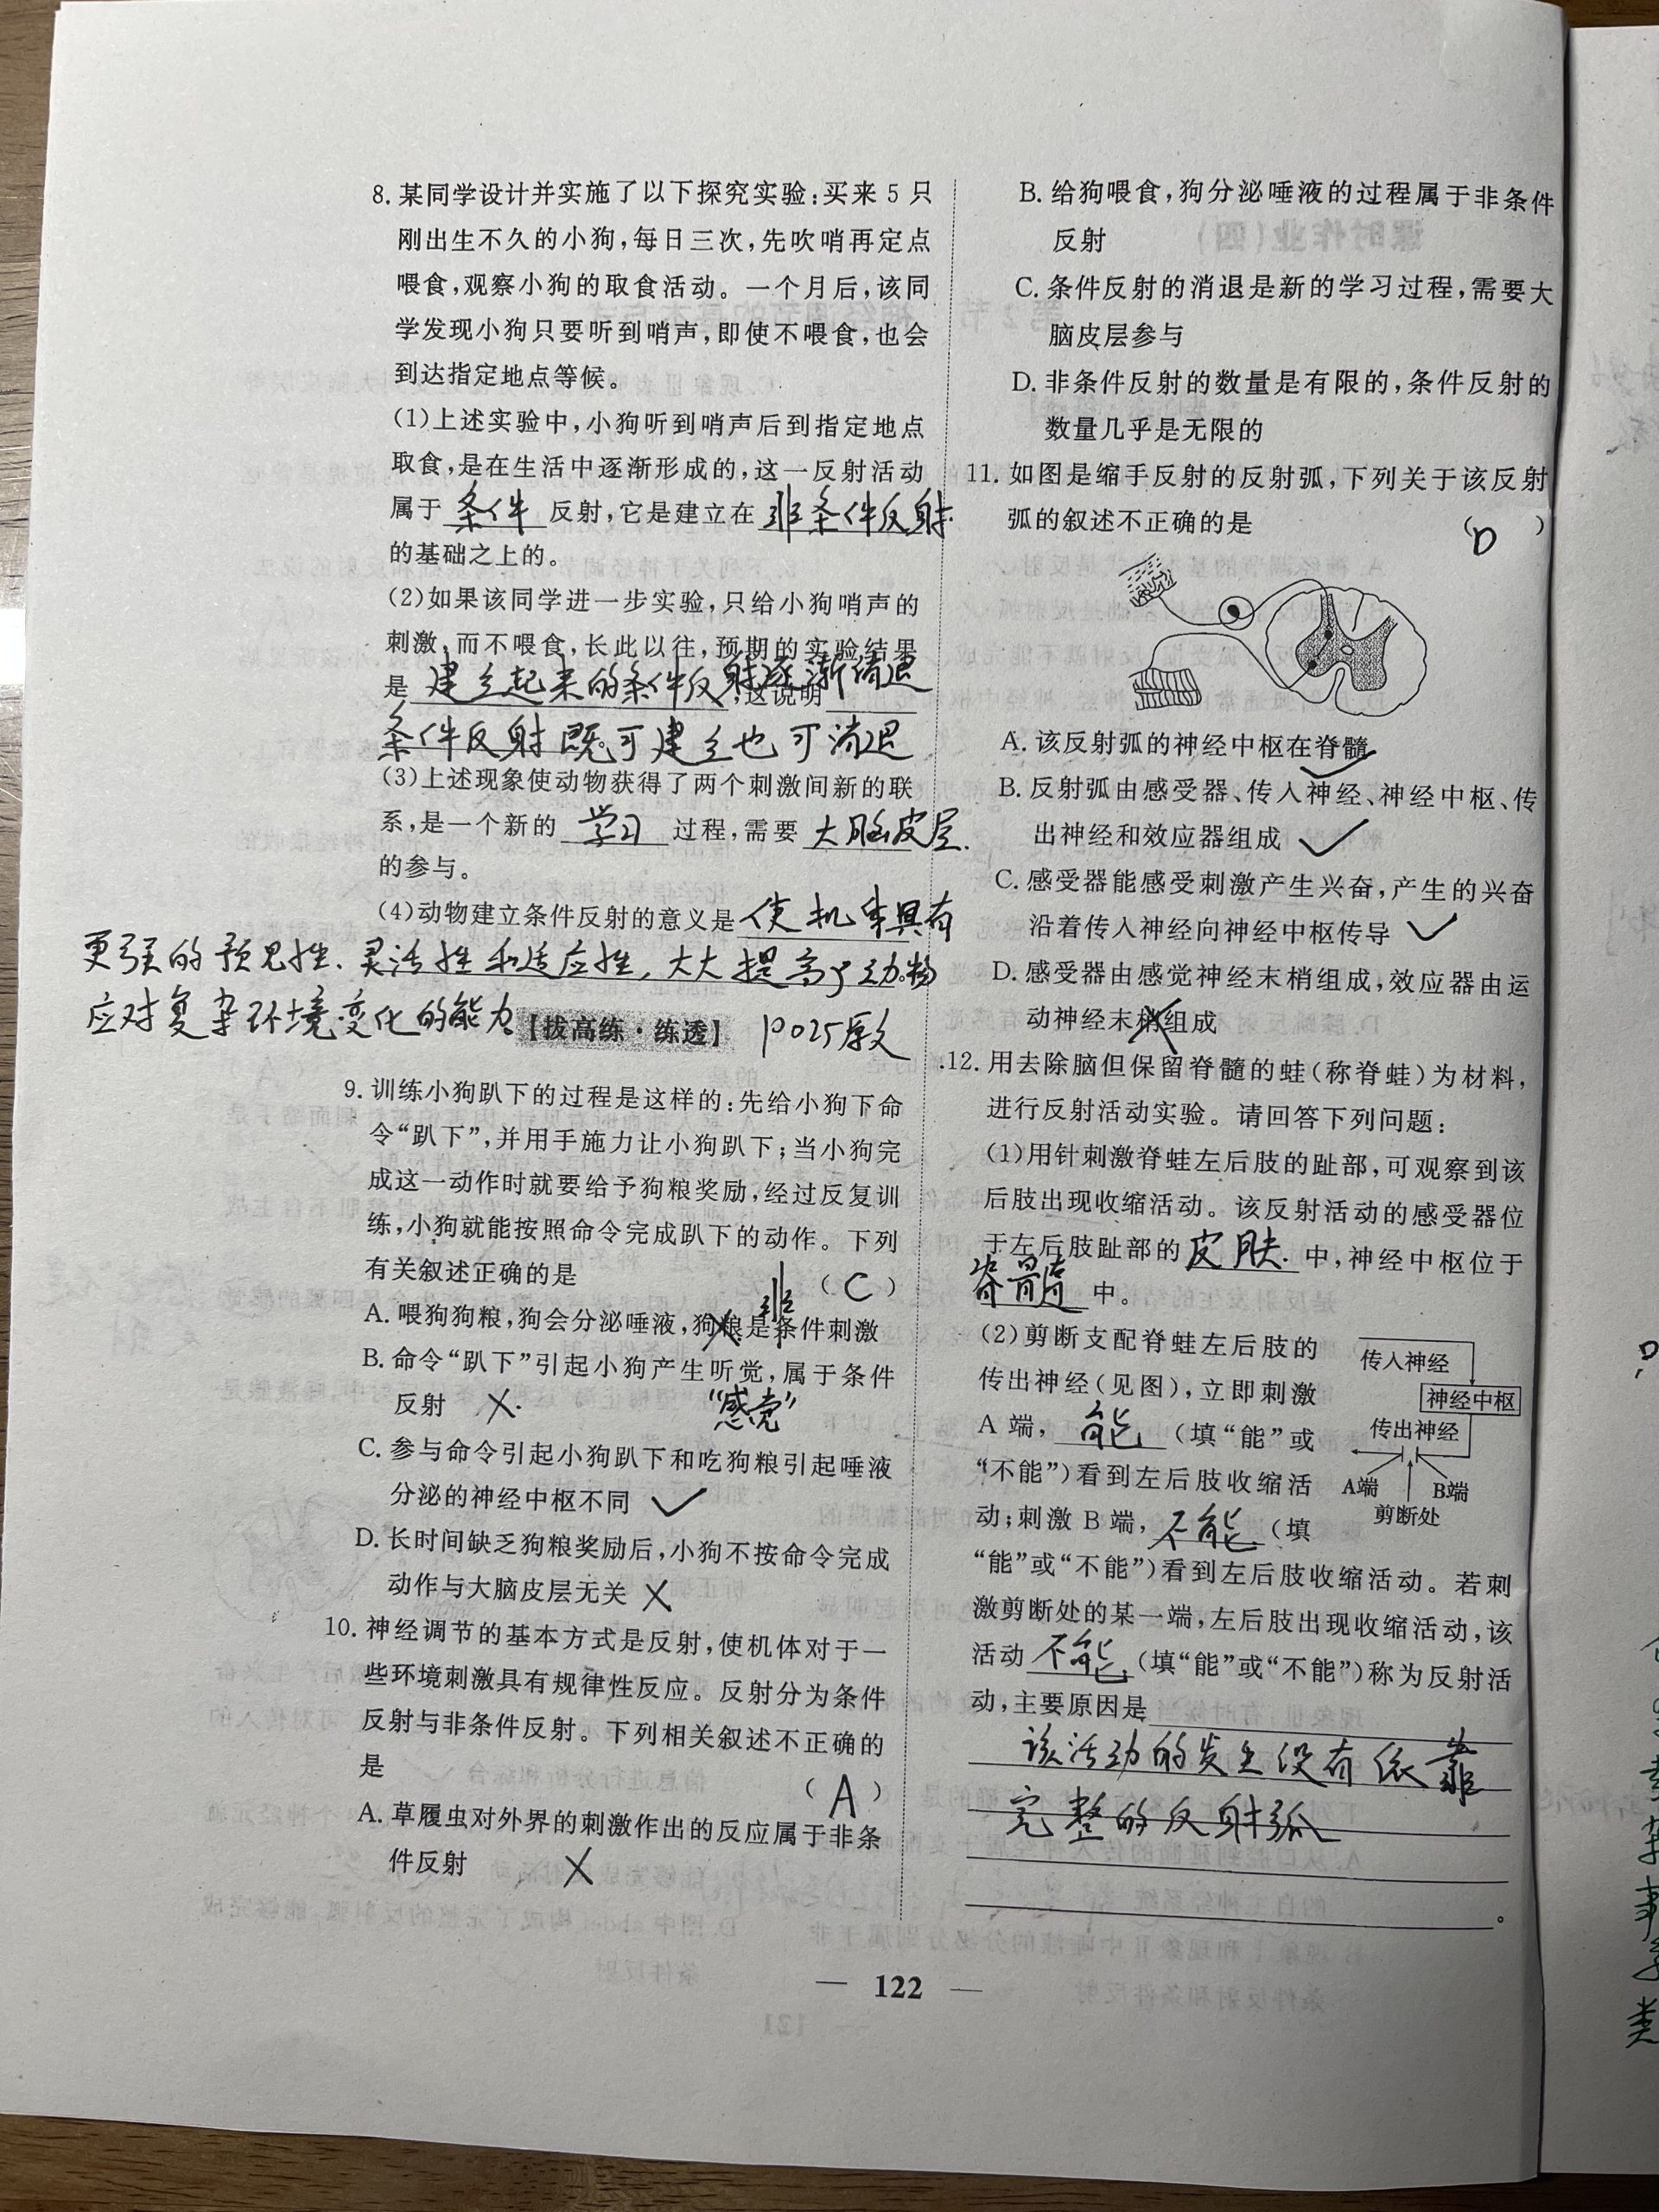 8. 某同学设计并实施了以下探究实验:买来 5 只
刚出生不久的小狗,每日三次,先吹哨再定点
喂食,观察小狗的取食活动。一个月后,该同
学发现小狗只要听到哨声,即使不喂食,也会
到达指定地点等候。
(1)上述实验中,小狗听到哨声后到指定地点
取食,是在生活中逐渐形成的,这一反射活动
属于 条件 反射,它是建立在 非条件反射
的基础之上的。
(2)如果该同学进一步实验,只给小狗哨声的
刺激,而不喂食,长此以往,预期的实验结果
是 建立起来的条件反射逐渐消退 ,这说明
条件反射既可建立也可消退
(3)上述现象使动物获得了两个刺激间新的联
系,是一个新的 学习 过程,需要 大脑皮层
的参与。
(4)动物建立条件反射的意义是 使机体具有
更强的预见性、灵活性和适应性,大大提高了动物
应对复杂环境变化的能力。
【拔高练·练透】 P025原文
9. 训练小狗趴下的过程是这样的:先给小狗下命
令“趴下”,并用手施力让小狗趴下;当小狗完
成这一动作时就要给予狗粮奖励,经过反复训
练,小狗就能按照命令完成趴下的动作。下列
有关叙述正确的是 ( C )
非
A. 喂狗狗粮,狗会分泌唾液,狗粮是条件刺激
B. 命令“趴下”引起小狗产生听觉,属于条件
反射 × “感觉”
C. 参与命令引起小狗趴下和吃狗粮引起唾液
分泌的神经中枢不同 ✓
D. 长时间缺乏狗粮奖励后,小狗不按命令完成
动作与大脑皮层无关 ×
10. 神经调节的基本方式是反射,使机体对于一
些环境刺激具有规律性反应。反射分为条件
反射与非条件反射。下列相关叙述不正确的
是 ( A )
A. 草履虫对外界的刺激作出的反应属于非条
件反射 ×
B. 给狗喂食,狗分泌唾液的过程属于非条件
反射
C. 条件反射的消退是新的学习过程,需要大
脑皮层参与
D. 非条件反射的数量是有限的,条件反射的
数量几乎是无限的
11. 如图是缩手反射的反射弧,下列关于该反射
弧的叙述不正确的是 ( D )
A. 该反射弧的神经中枢在脊髓 ✓
B. 反射弧由感受器、传入神经、神经中枢、传
出神经和效应器组成 ✓
C. 感受器能感受刺激产生兴奋,产生的兴奋
沿着传入神经向神经中枢传导 ✓
D. 感受器由感觉神经末梢组成,效应器由运
动神经末梢组成 ×
12. 用去除脑但保留脊髓的蛙(称脊蛙)为材料,
进行反射活动实验。请回答下列问题:
(1)用针刺激脊蛙左后肢的趾部,可观察到该
后肢出现收缩活动。该反射活动的感受器位
于左后肢趾部的 皮肤 中,神经中枢位于
脊髓 中。
(2)剪断支配脊蛙左后肢的
传出神经(见图),立即刺激
A 端, 能 (填“能”或
“不能”)看到左后肢收缩活
动;刺激 B 端, 不能 (填
“能”或“不能”)看到左后肢收缩活动。若刺
激剪断处的某一端,左后肢出现收缩活动,该
活动 不能 (填“能”或“不能”)称为反射活
动,主要原因是
该活动的发生没有依靠
完整的反射弧
。
传入神经
神经中枢
传出神经
A端
B端
剪断处
— 122 —